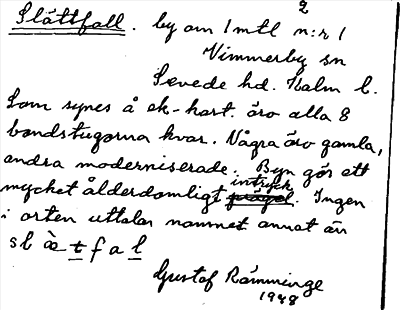 2
Slättfall. by om 1 mtl n:r 1
Vimmerby sn
Sevede hd. Kalm l.
Som synes å ek-kart. äro alla 8
bondstugorna kvar. Några äro gamla,
andra moderniserade. Byn gör ett
intryck
mycket ålderdomligt prägel. Ingen
i orten uttalar namnet annat än
slätfal
Gustaf Rämminge
1948